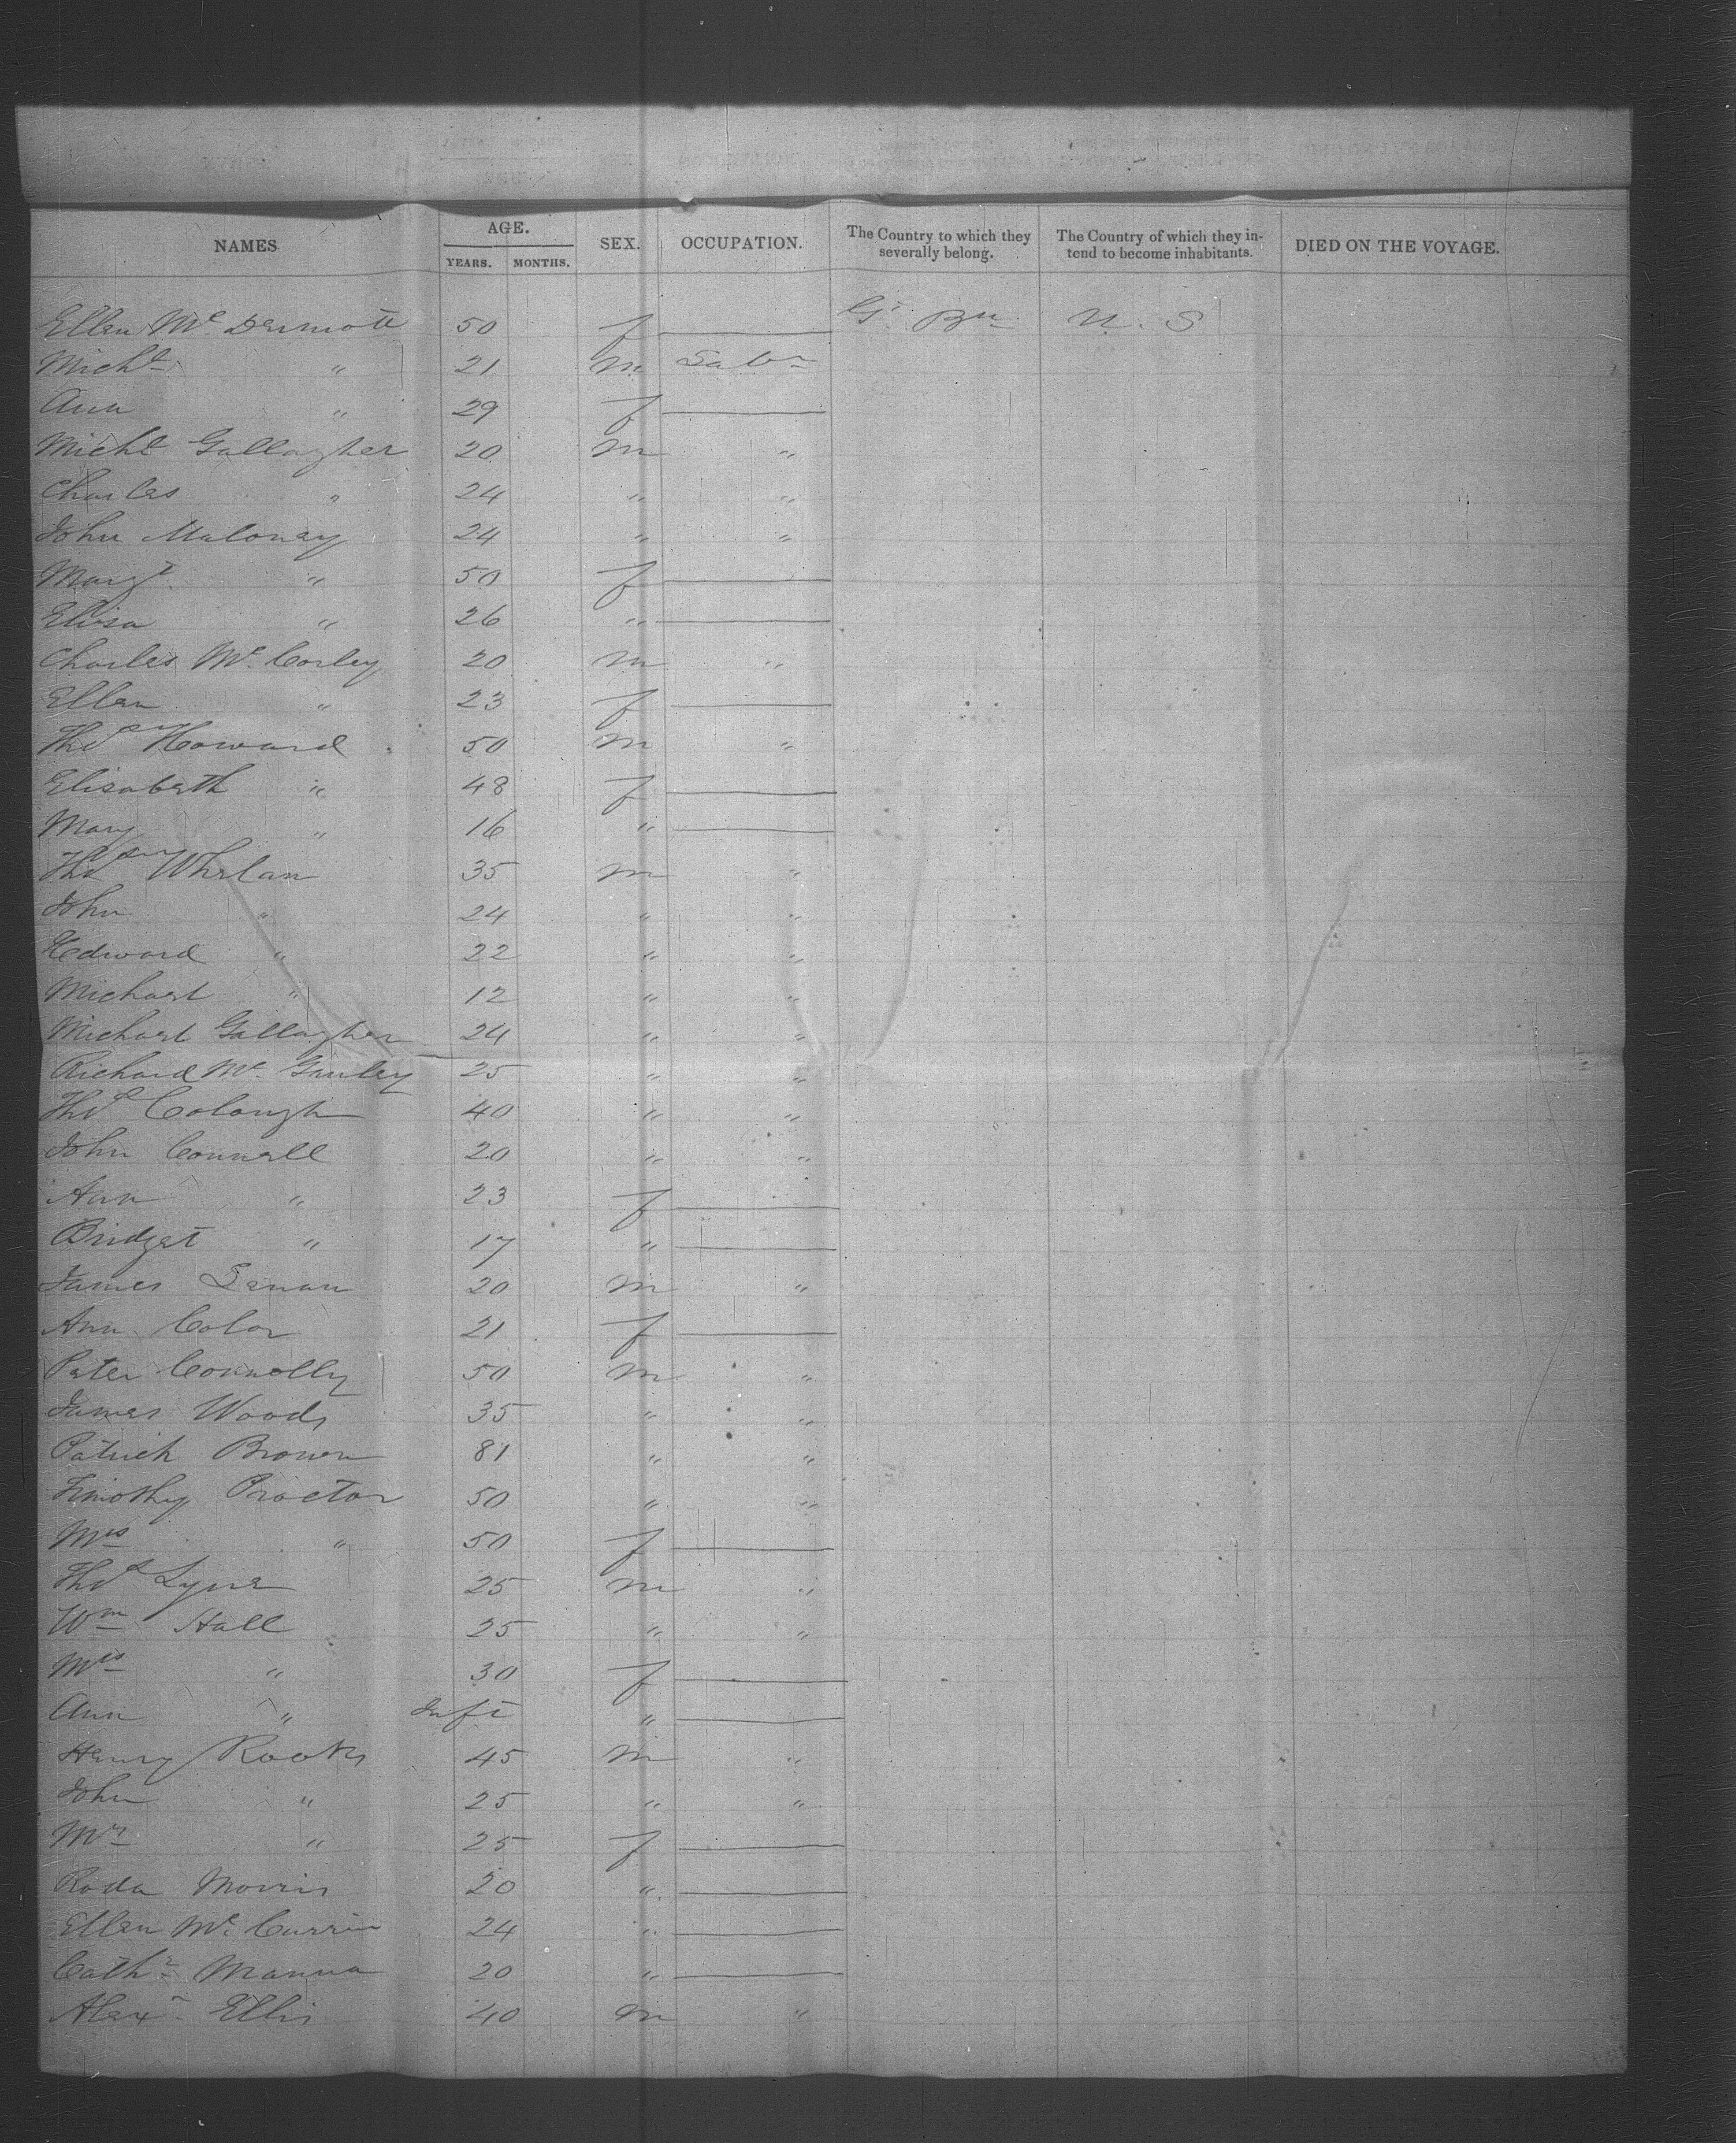 NAMES AGE. YEARS. MONTHS. SEX. OCCUPATION. The Country to which they severally belong. The Country of which they intend to become inhabitants. DIED ON THE VOYAGE.
Ellen McDermott 50 f — Gt. Bn U. S
Michl " 21 m Labr
Ann " 29 f —
Michl Gallagher 20 m "
Charles " 24 " "
John Maloney 24 " "
Margt " 50 f —
Elisa " 26 " —
Charles Mc Corley 20 m "
Ellen " 23 f —
Thos Howard 50 m "
Elisabeth " 48 f —
Mary " 16 " —
Thos Whelan 35 m "
John " 24 " "
Edward " 22 " "
Michael " 12 " "
Michael Gallagher 24 " "
Richard Mc Ganley 25 " "
Thos Colough 40 " "
John Connell 20 " "
Ann " 23 f —
Bridget " 17 " —
James Lenan 20 m "
Ann Colar 21 f —
Peter Connolly 50 m "
James Woods 35 " "
Patrick Brown 81 " "
Timothy Proctor 50 " "
Mrs " 50 f —
Thos Lyne 25 m "
Wm Hall 25 " "
Mrs " 30 f —
Ann " Inft " —
Henry Rooks 45 m "
John " 25 " "
Mrs " 25 f —
Roda Morris 20 " —
Ellen Mc Currin 24 " —
Cathe Manna 20 " —
Alexr Ellis 40 m "